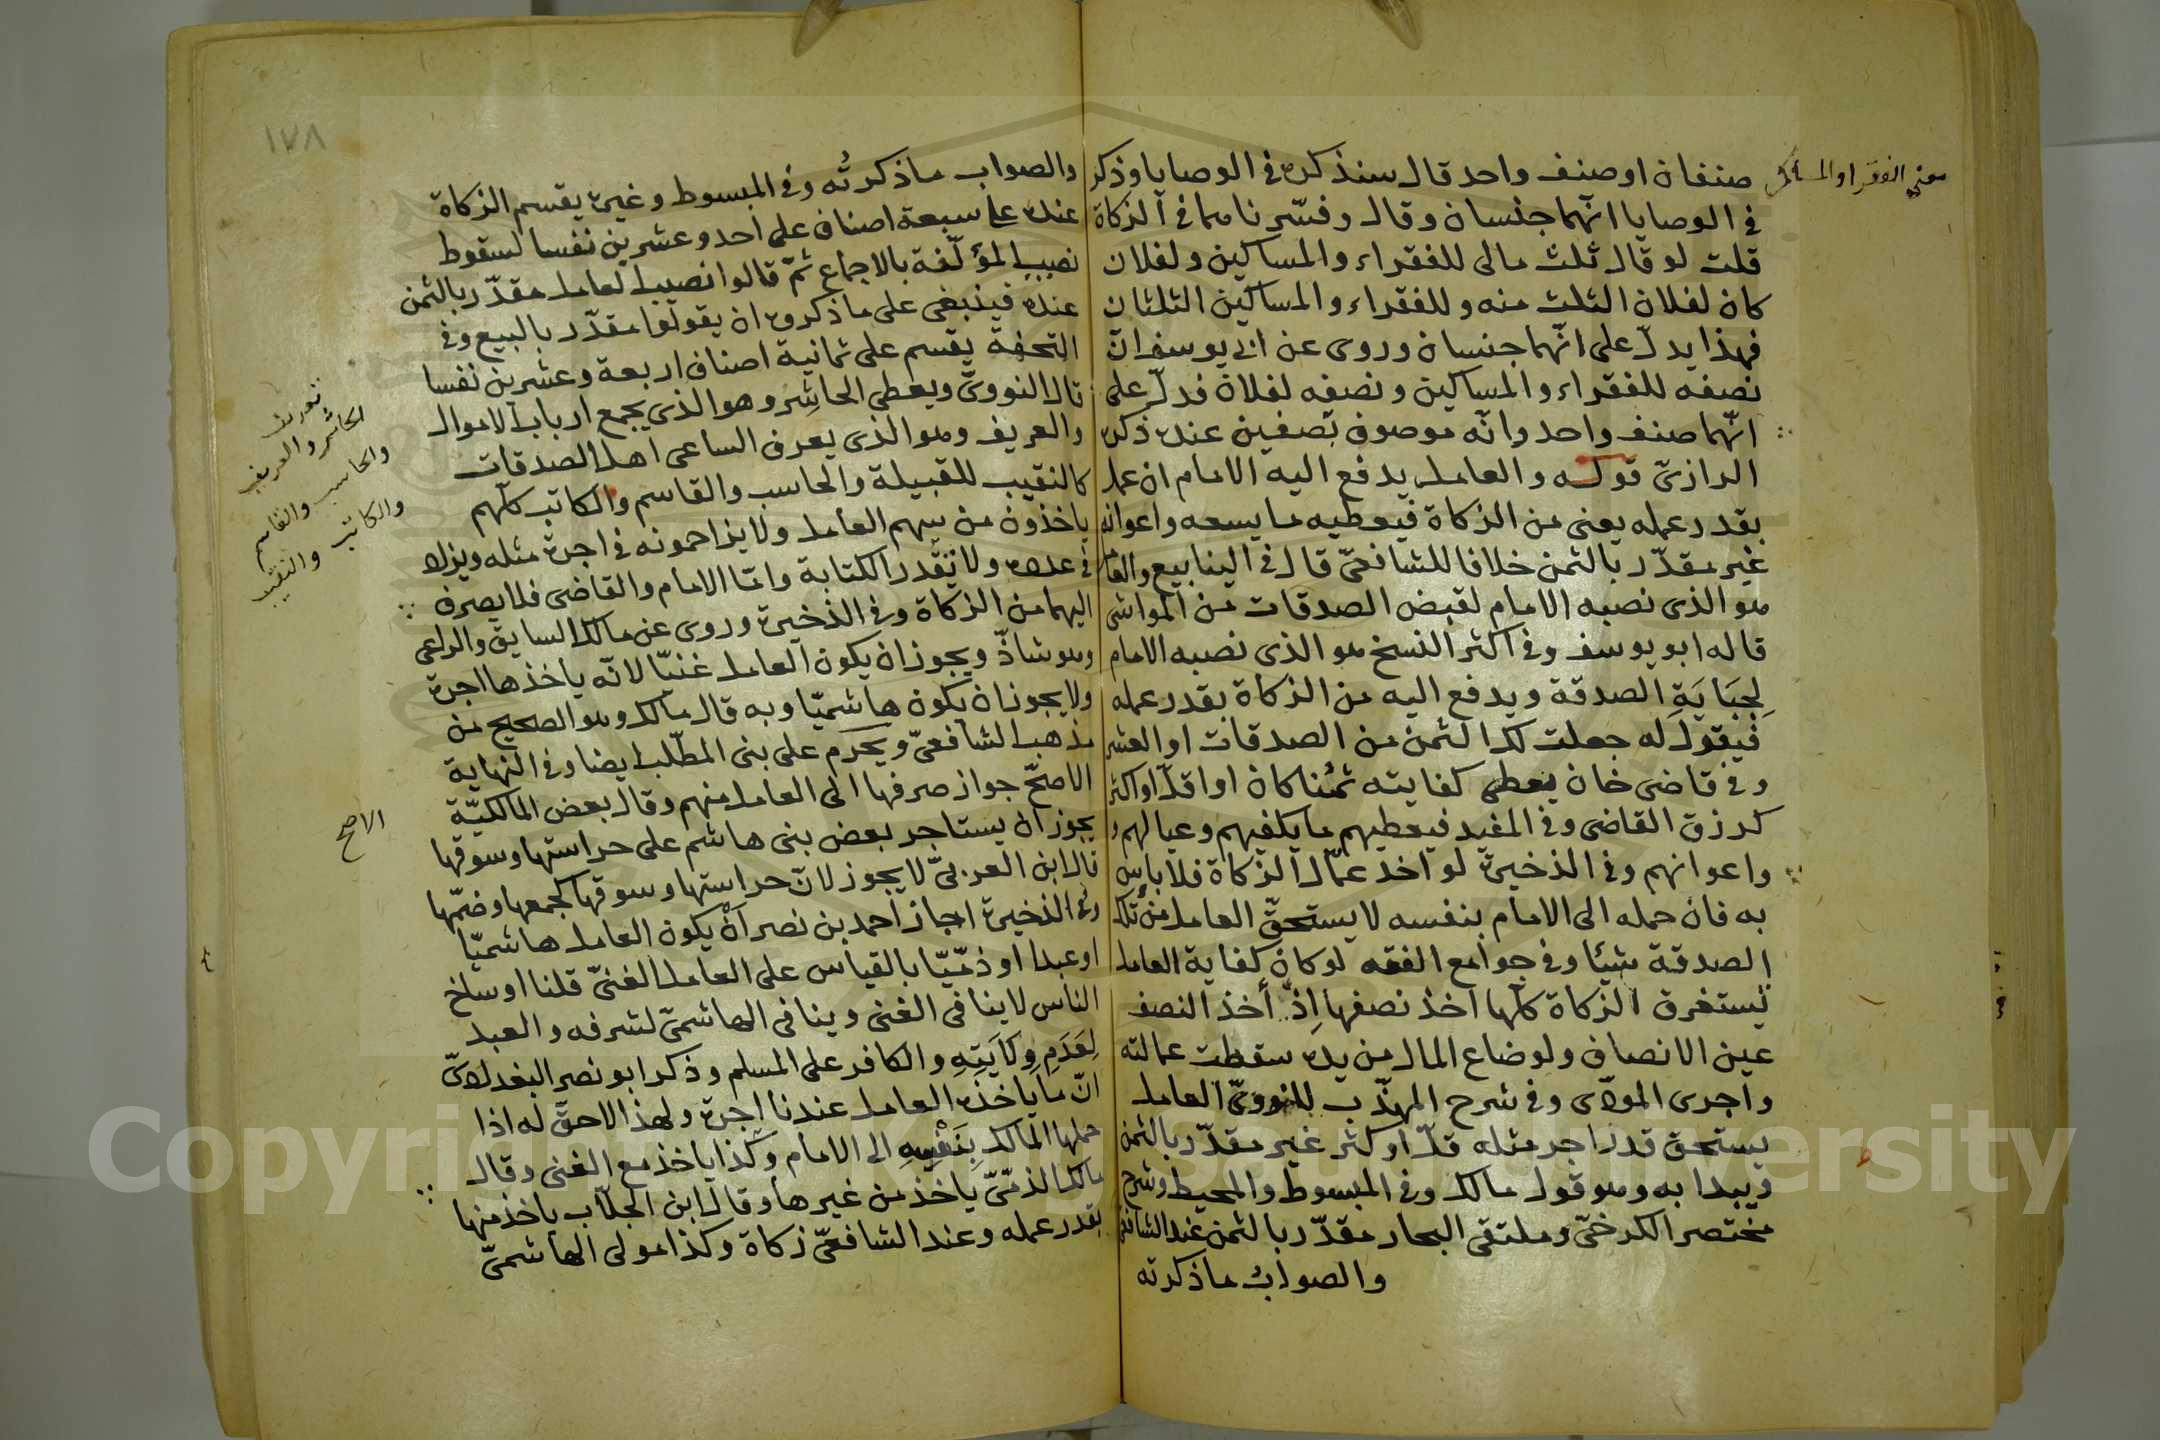 معنى الفقراء والمساكين
صنفان او صنف واحد قال سنذكره فى الوصايا وذكر
فى الوصايا انهما جنسان وقال وفسّرناهما فى الزكاة
قلت لو قال ثلث مالى للفقراء والمساكين ولفلان
كان لفلان الثلث منه وللفقراء والمساكين الثلثان
فهذا يدلّ على انّهما جنسان وروى عن ابى يوسف انّ
نصفه للفقراء والمساكين ونصفه لفلان فدلّ على
انّهما صنف واحد وانّه موصوف بصفين عنده ذكره
الرازىّ قوله والعامل يدفع اليه الامام ان عمل
بقدر عمله يعنى من الزكاة فيعطيه ما يسعه واعوانه
غير مقدّر بالثمن خلافا للشافعىّ قال فى الينابيع والعامل
هو الذى نصبه الامام لقبض الصدقات من المواشى
قاله ابو يوسف وفى اكثر النسخ هو الذى نصبه الامام
لِجِبَايَةِ الصدقة ويدفع اليه من الزكاة بقدر عمله
فيقول له جعلت لك الثمن من الصدقات او العشر
وفى قاضى خان يعطى كفايته ثُمُنا كان او اقلّ او اكثر
كرزق القاضى وفى المفيد فيعطيهم ما يكفيهم وعيالهم
واعوانهم وفى الذخيرة لو اخذ عمّال الزكاة فلا باس
به فان حمله الى الامام بنفسه لا يستحقّ العامل من تلك
الصدقة شيئا وفى جوامع الفقه لو كان كفاية العامل
تستغرق الزكاة كلّها اخذ نصفها اِذ أخذ النصف
عين الانصاف ولو ضاع المال من يده سقطت عمالته
واجرى المؤدّى وفى شرح المهذّب للنووىّ العامل
يستحق قدر اجر مثله قلّ او كثر غير مقدّر بالثمن
ويبدا به وهو قول مالك وفى المبسوط والمحيط وشرح
مختصر الكرخىّ وملتقى البحار مقدّر بالثمن عند الشافعى
والصواب ما ذكرته
١٧٨
والصواب ما ذكرتُه وفى المبسوط وغيره يقسم الزكاة
عنده على سبعة اصناف على احد وعشرين نفسا لسقوط
نصيب المؤلّفة بالاجماع ثمّ قالوا نصيب العامل مقدّر بالثمن
عنده فينبغى على ما ذكروه ان يقولوا مقدّر بالبيع وفى
التحفة يقسم على ثمانية اصناف اربعة وعشرين نفسا
قال النووىّ ويعطى الحاشِر وهو الذى يجمع ارباب الاموال
والعريف وهو الذى يعرف الساعى اهل الصدقات
كالنقيب للقبيلة والحاسب والقاسم والكاتب كلّهم
ياخذون من سهم العامل ولا يزاحمونه فى اجرة مثله ويزاد
فى عدده ولا تقدر الكتابة وامّا الامام والقاضى فلا يصرف
اليهما من الزكاة وفى الذخيرة وروى عن مالك السايق والراعى
وهو شاذّ ويجوز ان يكون العامل غنيّا لانّه ياخذها اجرة
ولا يجوز ان يكون هاشميّا وبه قال مالك وهو الصحيح من
مذهب الشافعىّ ويحرم على بنى المطّلب ايضا وفى النهاية
الاصحّ جواز صرفها الى العامل منهم وقال بعض المالكيّة
يجوز ان يستاجر بعض بنى هاشم على حراستها وسوقها
قال ابن العربىّ لا يجوز لانّ حراستها وسوقها كجمعها وضمّها
وفى الذخيرة اجاز احمد بن نصر اَنْ يكون العامل هاشميّا
او عبدا او ذمّيّا بالقياس على العامل الغنىّ قلنا اوساخ
الناس لا ينافى الغنى وينافى الهاشمىّ لشرفه والعبد
لِعَدَمِ وِلَايَتِهِ والكافر على المسلم وذكر ابو نصر البغدادىّ
انّ ما ياخذه العامل عندنا اجرة ولهذا لا حقّ له اذا
حملها المالك بِنَفْسِهِ الى الامام وكذا ياخذ مع الغنى وقال
مالك الذمّىّ ياخذ من غيرها وقال ابن الجلّاب ياخذ منها
بقدر عمله وعند الشافعىّ زكاة وكذا مولى الهاشمىّ
تعريف
الحاشر والعريف
والحاسب والقاسم
والكاتب والنقيب
الاصح
Copyright © King Saud University